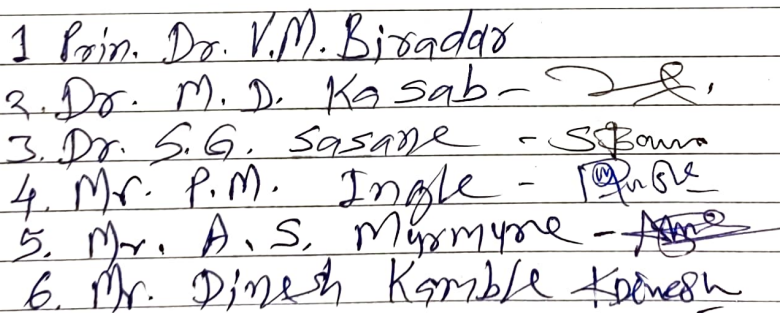 1 Prin. Dr. V.M. Biradar
2. Dr. M. D. Kasab -
3. Dr. S.G. Sasane -
4. Mr. P.M. Ingle -
5. Mr. A. S. Murmure -
6. Mr. Dinesh Kamble KDinesh